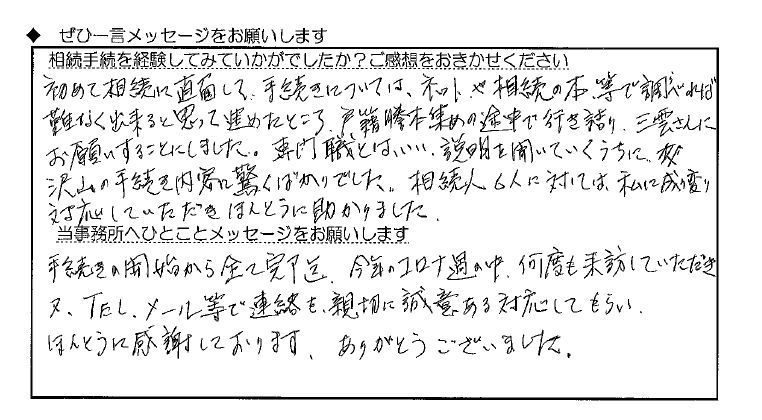 ◆ ぜひ一言メッセージをお願いします
相続手続を経験してみていかがでしたか？ご感想をおきかせください
初めて相続に直面して、手続きについては、ネットや相続の本等で調べれば
難なく出来ると思って進めたところ、戸籍謄本集めの途中で行き詰り、三雲さんに
お願いすることにしました。専門職とはいい、説明を聞いていくうちに、
沢山の手続き内容に驚くばかりでした。相続人6人に対しては、私に成り変り
対応していただきほんとうに助かりました。
当事務所へひとことメッセージをお願いします
手続きの開始から全て完了迄、今年のコロナ過の中、何度も来訪していただき
又、TEL、メール等で連絡を、親切に誠意ある対応してもらい、
ほんとうに感謝しております、ありがとうございました。